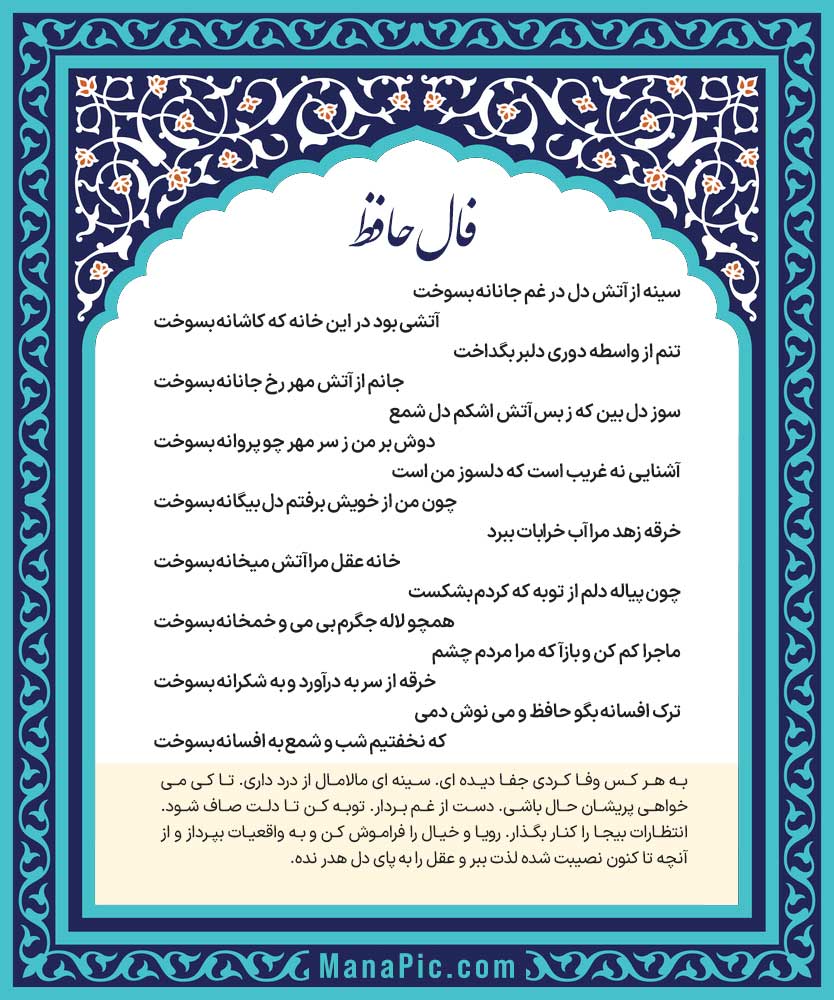 فال حافظ
سینه از آتش دل در غم جانانه بسوخت
آتشی بود در این خانه که کاشانه بسوخت
تنم از واسطه دوری دلبر بگداخت
جانم از آتش مهر رخ جانانه بسوخت
سوز دل بین که ز بس آتش اشکم دل شمع
دوش بر من ز سر مهر چو پروانه بسوخت
آشنایی نه غریب است که دلسوز من است
چون من از خویش برفتم دل بیگانه بسوخت
خرقه زهد مرا آب خرابات ببرد
خانه عقل مرا آتش میخانه بسوخت
چون پیاله دلم از توبه که کردم بشکست
همچو لاله جگرم بی می و خمخانه بسوخت
ماجرا کم کن و بازآ که مرا مردم چشم
خرقه از سر به درآورد و به شکرانه بسوخت
ترک افسانه بگو حافظ و می نوش دمی
که نخفتیم شب و شمع به افسانه بسوخت
به هر کس وفا کردی جفا دیده ای. سینه ای مالامال از درد داری. تا کی می
خواهی پریشان حال باشی. دست از غم بردار. توبه کن تا دلت صاف شود.
انتظارات بیجا را کنار بگذار. رویا و خیال را فراموش کن و به واقعیات بپرداز و از
آنچه تا کنون نصیبت شده لذت ببر و عقل را به پای دل هدر نده.
ManaPic.com